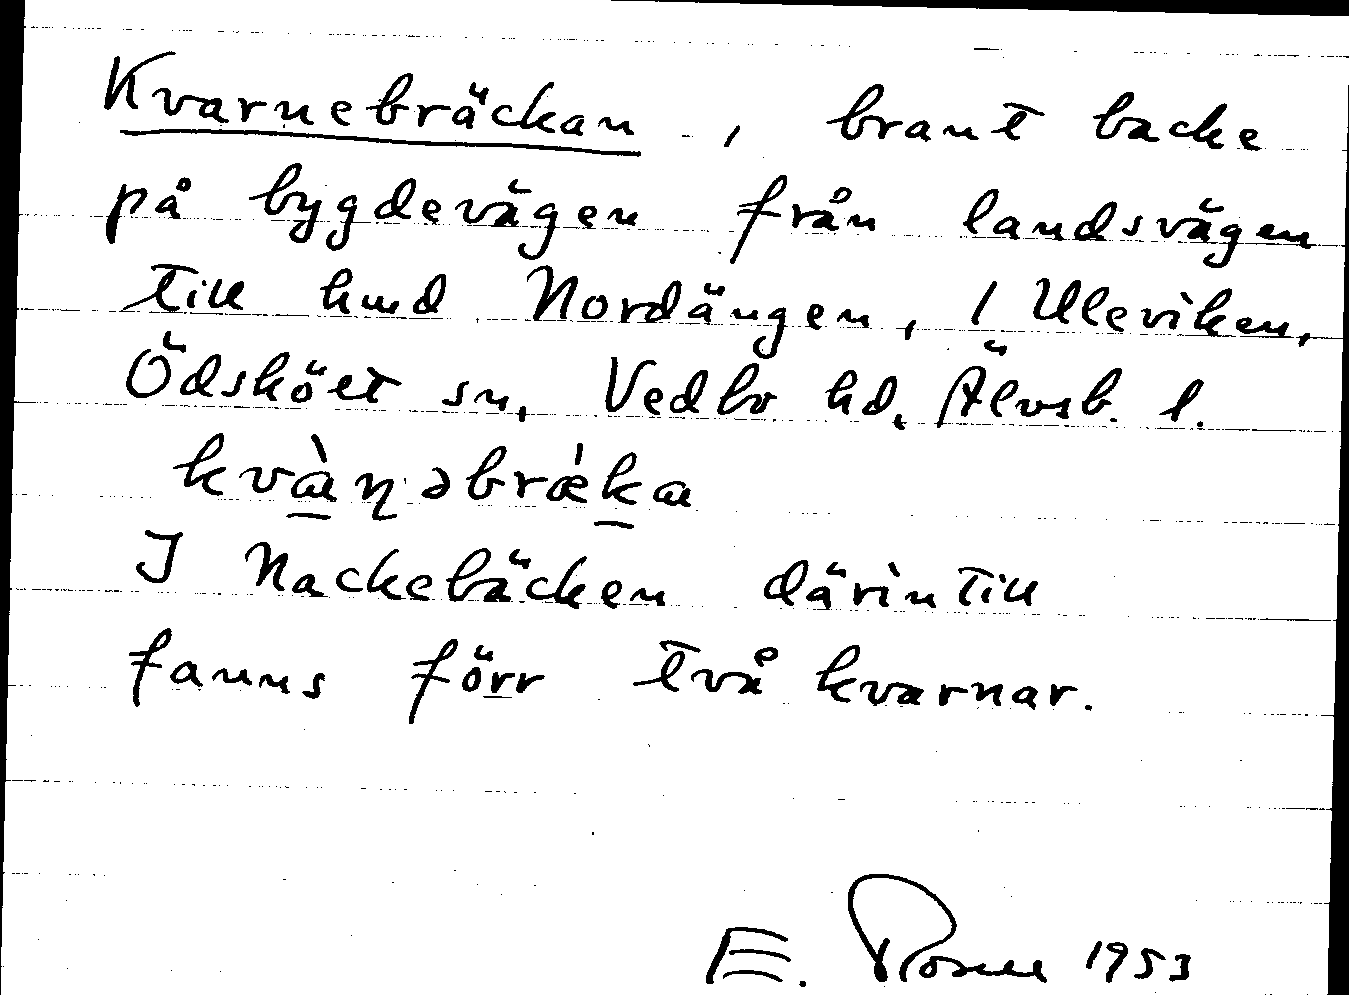 Kvarnebräckan, brant backe
på bygdevägen från landsvägen
till hmd Nordängen, 1 Uleviken,
Ödsköet sn, Vedbo hd, Älvsb. l.
kvàɳəbrǽka
I Nackebäcken därintill
fanns förr två kvarnar.
E. 1953